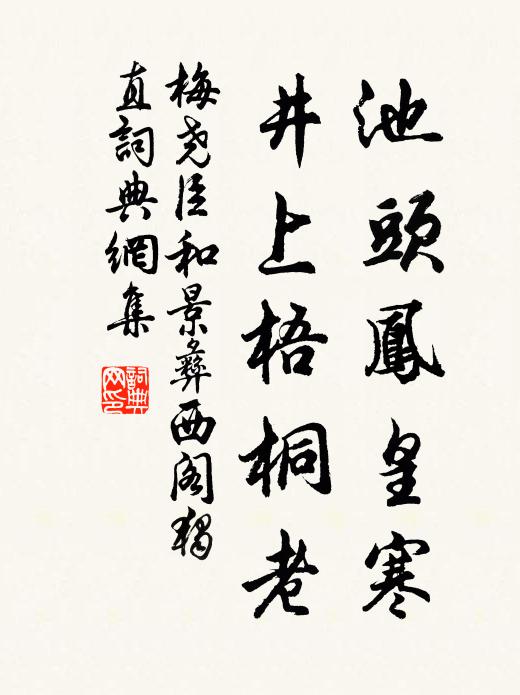 池頭鳳皇寒
井上梧桐老
梅尧臣和景彝西阁独
直詞典網集
詞典
网印